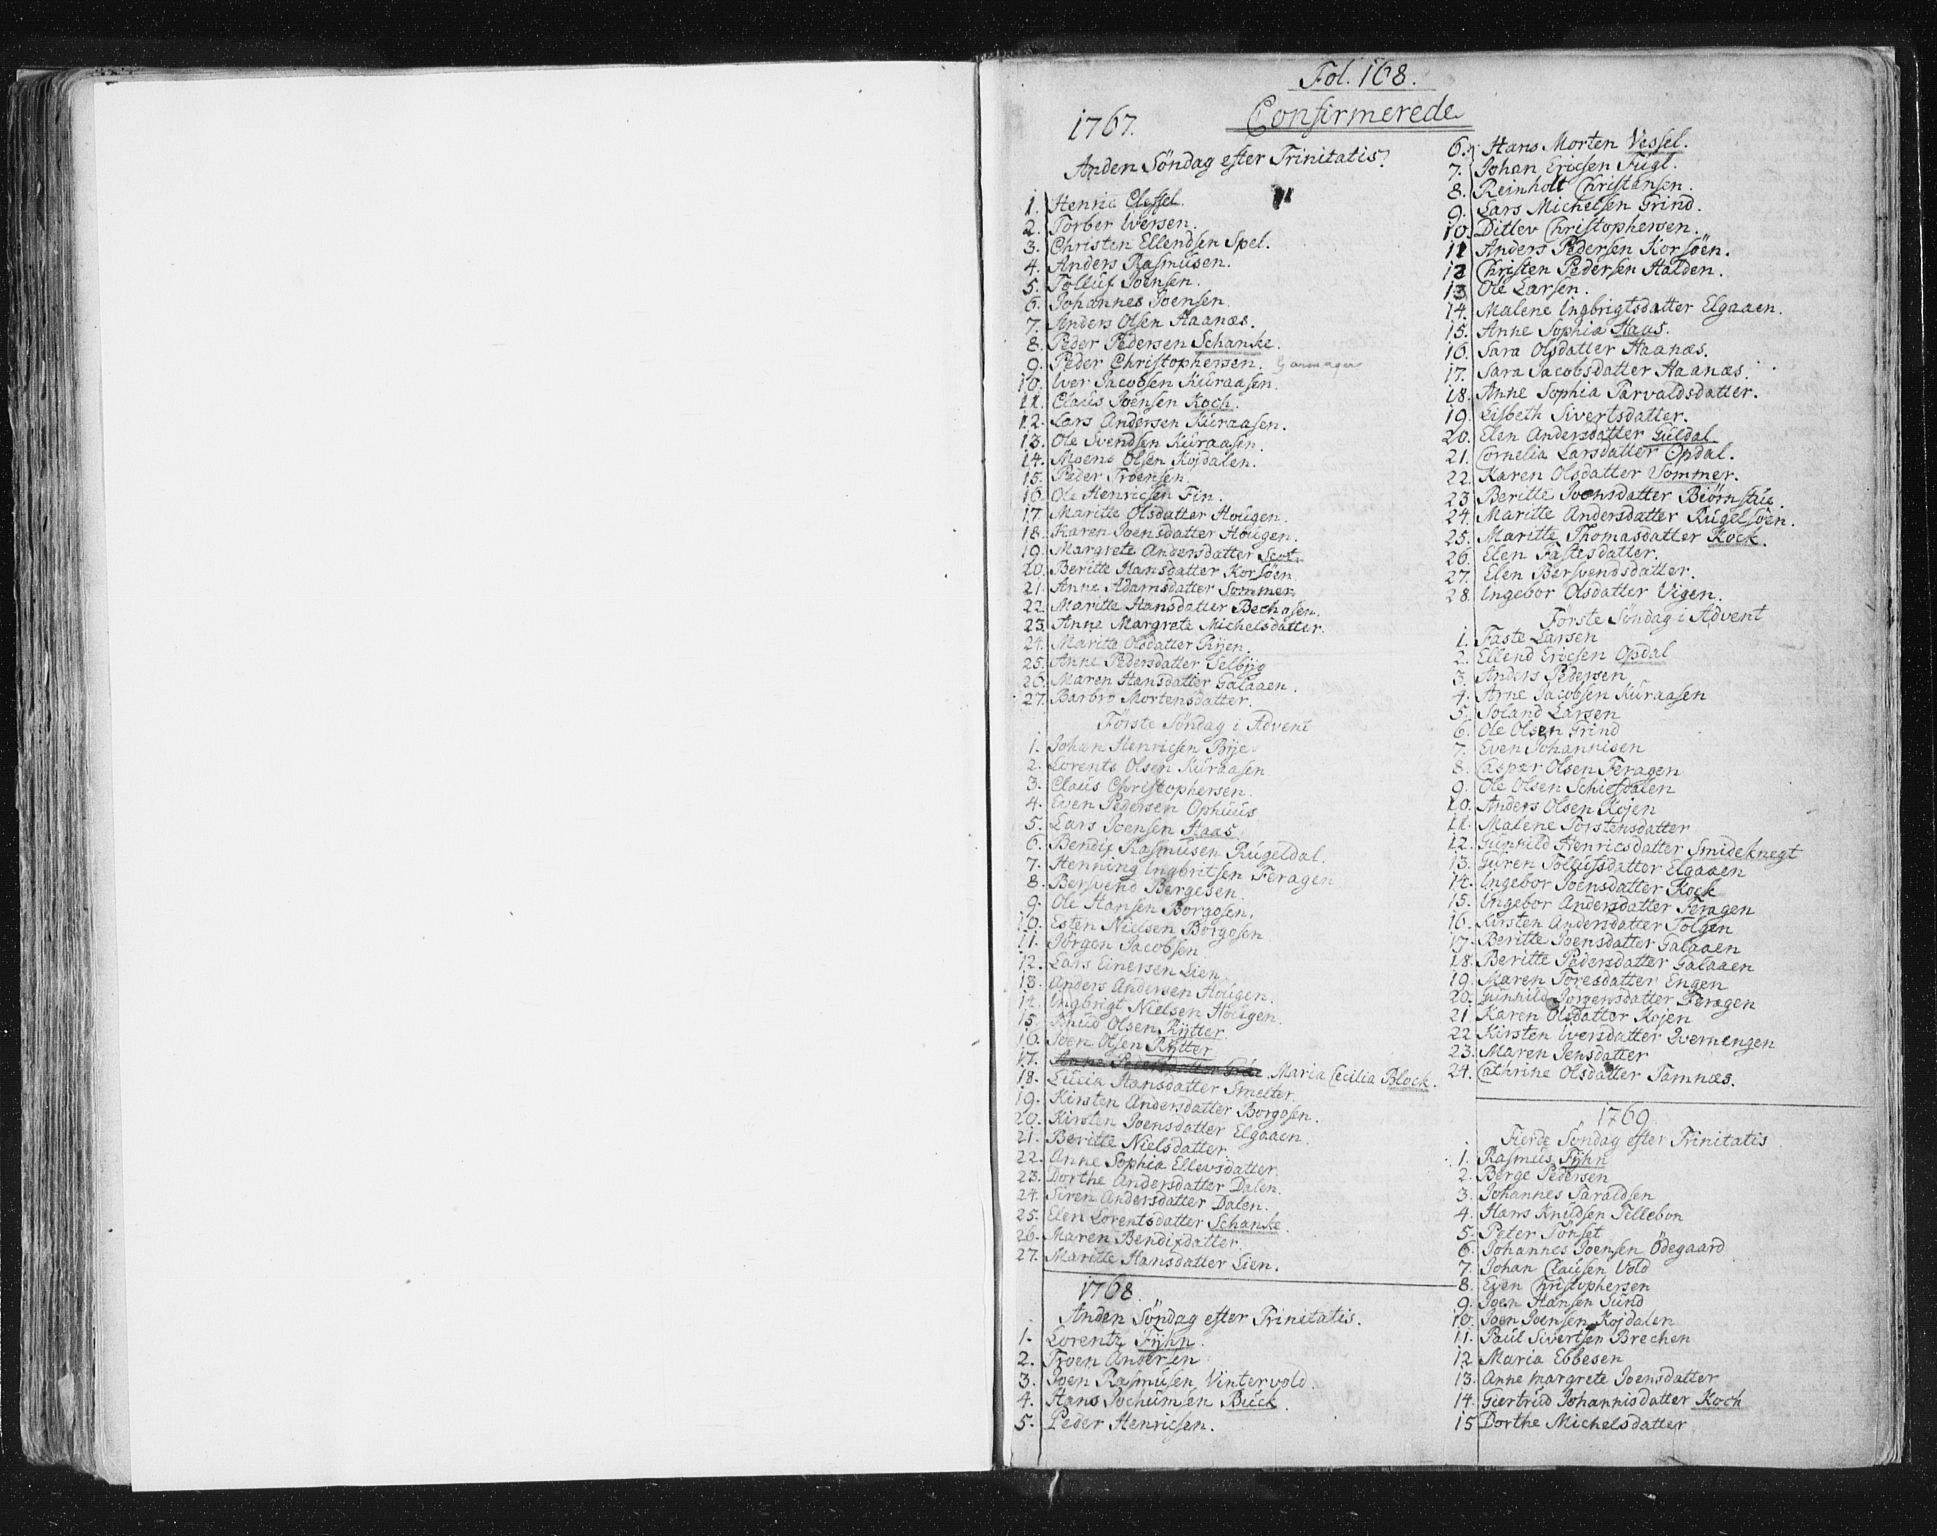 Fol. 168.
Confirmerede
1767.
Anden Söndag efter Trinitatis.
1. Henric Clessel.
2. Torber Iversen.
3. Christen Ellendsen Spel.
4. Anders Rasmusen.
5. Tolluf Joensen.
6. Johannes Joensen.
7. Anders Olsen Haanæs.
8. Peder Pedersen Schanke.
9. Peder Christophersen.
10. Iver Jacobsen Kuraasen.
11. Claus Joensen Koch.
12. Lars Andersen Kuraasen.
13. Ole Svendsen Kuraasen.
14. Moens Olsen Kojdalen.
15. Peder Troensen.
16. Ole Henricsen Fin.
17. Maritte Olsdatter Hougen.
18. Karen Joensdatter Hougen.
19. Margrete Andersdatter Scot.
20. Beritte Hansdatter Korsöen.
21. Anne Adamsdatter Sommer.
22. Maritte Hansdatter Bechosen.
23. Anne Margrete Michelsdatter.
24. Maritte Olsdatter Ryen.
25. Anne Pedersdatter Selbyg
26. Maren Hansdatter Galaaen.
27. Barbro Mortensdatter.
Förste Söndag i Advent
1. Johan Henricsen Bye.
2. Lorents Olsen Kuraasen
3. Claus Christophersen.
4. Even Pedersen Ophuus
5. Lars Joensen Haas
6. Bendix Rasmusen Rugeldal.
7. Henning Ingbritsen Feragen
8. Bersvend Bergesen
9. Ole Hansen Borgosen.
10. Esten Nielsen Borgosen
11. Jörgen Jacobsen
12. Lars Einersen Lien.
13. Anders Andersen Hougen.
14. Ingbrigt Nielsen Hougen.
15. Knud Olsen Rytter
16. Joen Olsen Rytter
17. Maria Cecilia Block.
18. Lucia Hansdatter Smelter.
19. Kirsten Andersdatter Borgosen.
20. Kirsten Joensdatter Elgaaen.
21. Beritte Nielsdatter
22. Anne Sophia Ellevsdatter
23. Dorthe Andersdatter Dalen.
24. Siren Andersdatter Dalen.
25. Elen Lorentsdatter Schanke.
26. Maren Bendixdatter.
27. Maritte Hansdatter Lien.
1768.
Anden Söndag efter Trinitatis.
1. Lorentz Fyhn.
2. Troen Andersen
3. Joen Rasmusen Vintervold.
4. Hans Jochumsen Buck.
5. Peder Henricsen.
6. Hans Morten Vessel.
7. Johan Ericsen Fugl.
8. Reinholt Christensen.
9. Lars Michelsen Grind.
10. Ditlev Christophersen.
11. Anders Pedersen Korsöen.
12. Christen Pedersen Halden.
13. Ole Larsen.
14. Malene Ingbrigtsdatter Elgaaen.
15. Anne Sophia Haas.
16. Sara Olsdatter Haanæs.
17. Sara Jacobsdatter Haanæs.
18. Anne Sophia Tarvaldsdatter.
19. Lisbeth Sivertsdatter.
20. Elen Andersdatter Guldal
21. Cornelia Larsdatter Opdal.
22. Karen Olsdatter Sommer.
23. Beritte Joensdatter Beörnstai.
24. Maritte Andersdatter Rugelsöen.
25. Maritte Thomasdatter Kock.
26. Elen Fastesdatter.
27. Elen Bersvendsdatter.
28. Ingebor Olsdatter Vigen.
Förste Söndag i Advent
1. Faste Larsen
2. Ellend Ericsen Opdal
3. Anders Pedersen
4. Arne Jacobsen Kuraasen
5. Joland Larsen
6. Ole Olsen Grind
7. Even Johannisen
8. Casper Olsen Feragen
9. Ole Olsen Schiefdalen
10. Anders Olsen Kojen
11. Malene Torstensdatter
12. Gunhild Henricsdatter Smideknegt
13. Guren Tollufsdatter Elgaaen
14. Ingebor Joensdatter Kock
15. Ingebor Andersdatter Feragen
16. Kirsten Andersdatter Tolgen
17. Beritte Joensdatter Galaaen
18. Beritte Pedersdatter Galaaen
19. Maren Toresdatter Engen
20. Gunhild Jörgensdatter Feragen
21. Karen Olsdatter Kojen
22. Kirsten Iversdatter Qvernengen
23. Maren Jensdatter
24. Cathrine Olsdatter Tamnæs.
1769.
Fierde Söndag efter Trinitatis
1. Rasmus Fyhn
2. Berge Pedersen
3. Johannes Taraldsen
4. Hans Knudsen Tellebon
5. Peter Tönset
6. Johannes Joensen Ödegaard
7. Johan Clausen Vold
8. Even Christophersen
9. Joen Hansen Sund
10. Joen Joensen Kojdalen
11. Paul Sivertsen Brechen
12. Maria Ebbesen
13. Anne margrete Joensdatter
14. Giertrud Johannisdatter Koch
15. Dorthe Michelsdatter